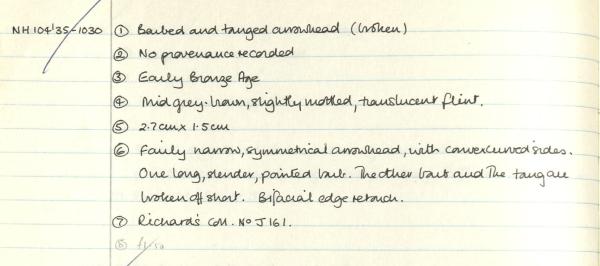 NH 104'35-1030 ① Barbed and tanged arrowhead (broken)
② No provenance recorded
③ Early Bronze Age
④ Mid grey-brown, slightly mottled, translucent flint.
⑤ 2.7cm x 1.5cm
⑥ Fairly narrow, symmetrical arrowhead, with convex curved sides.
One long, slender, pointed barb. The other barb and the tang are
broken off short. Bifacial edge retouch.
⑦ Richards Coll. No J161.
⑧